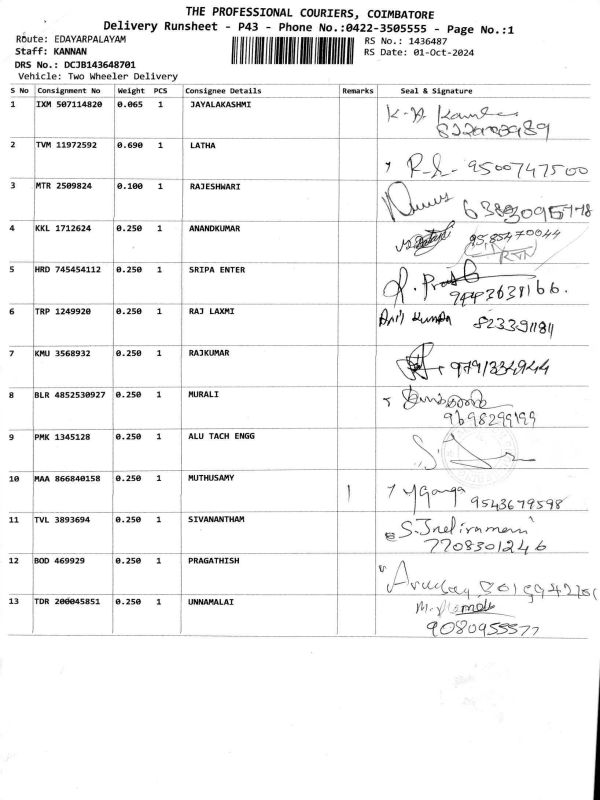 THE PROFESSIONAL COURIERS, COIMBATORE
Delivery Runsheet - P43 - Phone No.:0422-3505555 - Page No.:1
Route: EDAYARPALAYAM RS No.: 1436487
Staff: KANNAN RS Date: 01-Oct-2024
DRS No.: DCJB143648701
Vehicle: Two Wheeler Delivery
S No Consignment No Weight PCS Consignee Details Remarks Seal & Signature
1 IXM 507114820 0.065 1 JAYALAKASHMI
2 TVM 11972592 0.690 1 LATHA
9500747500
3 MTR 2509824 0.100 1 RAJESHWARI
4 KKL 1712624 0.250 1 ANANDKUMAR
9585470044
5 HRD 745454112 0.250 1 SRIPA ENTER
6 TRP 1249920 0.250 1 RAJ LAXMI
Anil Kumar
7 KMU 3568932 0.250 1 RAJKUMAR
9791334944
8 BLR 4852530927 0.250 1 MURALI
9698299199
9 PMK 1345128 0.250 1 ALU TACH ENGG
10 MAA 866840158 0.250 1 MUTHUSAMY
Y Ganga 9543679598
11 TVL 3893694 0.250 1 SIVANANTHAM
7708301246
12 BOD 469929 0.250 1 PRAGATHISH
13 TDR 200045851 0.250 1 UNNAMALAI
9080955577